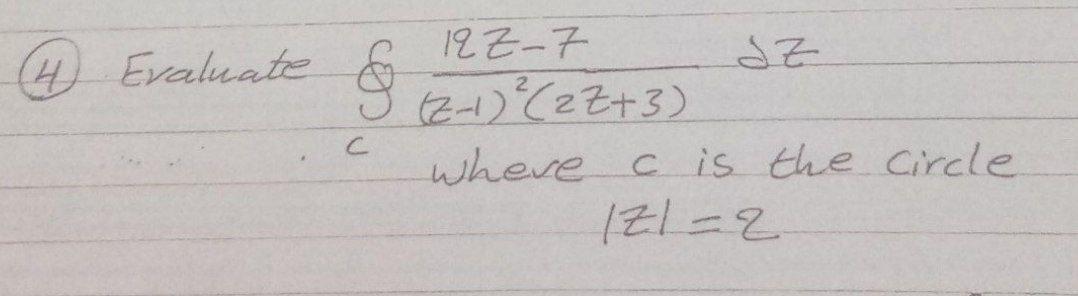 ④ Evaluate ∮_C (12Z-7)/((Z-1)²(2Z+3)) dZ
where c is the circle
|Z| = 2